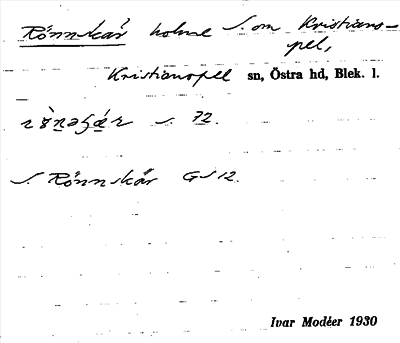 Rönnskär holme S. om Kristiano-
pel,
Kristianopel sn, Östra hd, Blek. l.
s. 72.
S. Rönnskär GS 12.
Ivar Modéer 1930